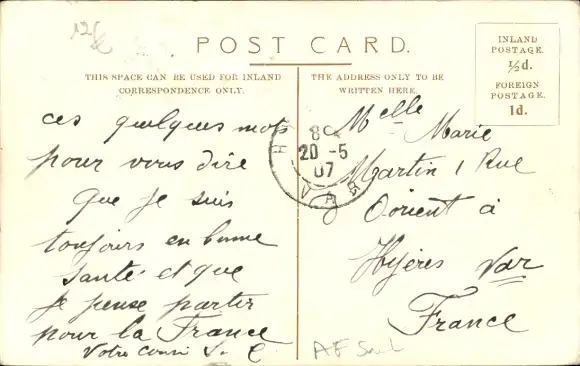 12
POST CARD.
INLAND
POSTAGE.
½d.
FOREIGN
POSTAGE.
1d.
THIS SPACE CAN BE USED FOR INLAND
CORRESPONDENCE ONLY.
THE ADDRESS ONLY TO BE
WRITTEN HERE.
ces quelques mots
pour vous dire
que je suis
toujours en bonne
santé et que
je pense partir
pour la France
Votre
H
20-5
07
VAR
Melle Marie
Martin 1 Rue
d'orient à
Hyères Var
France